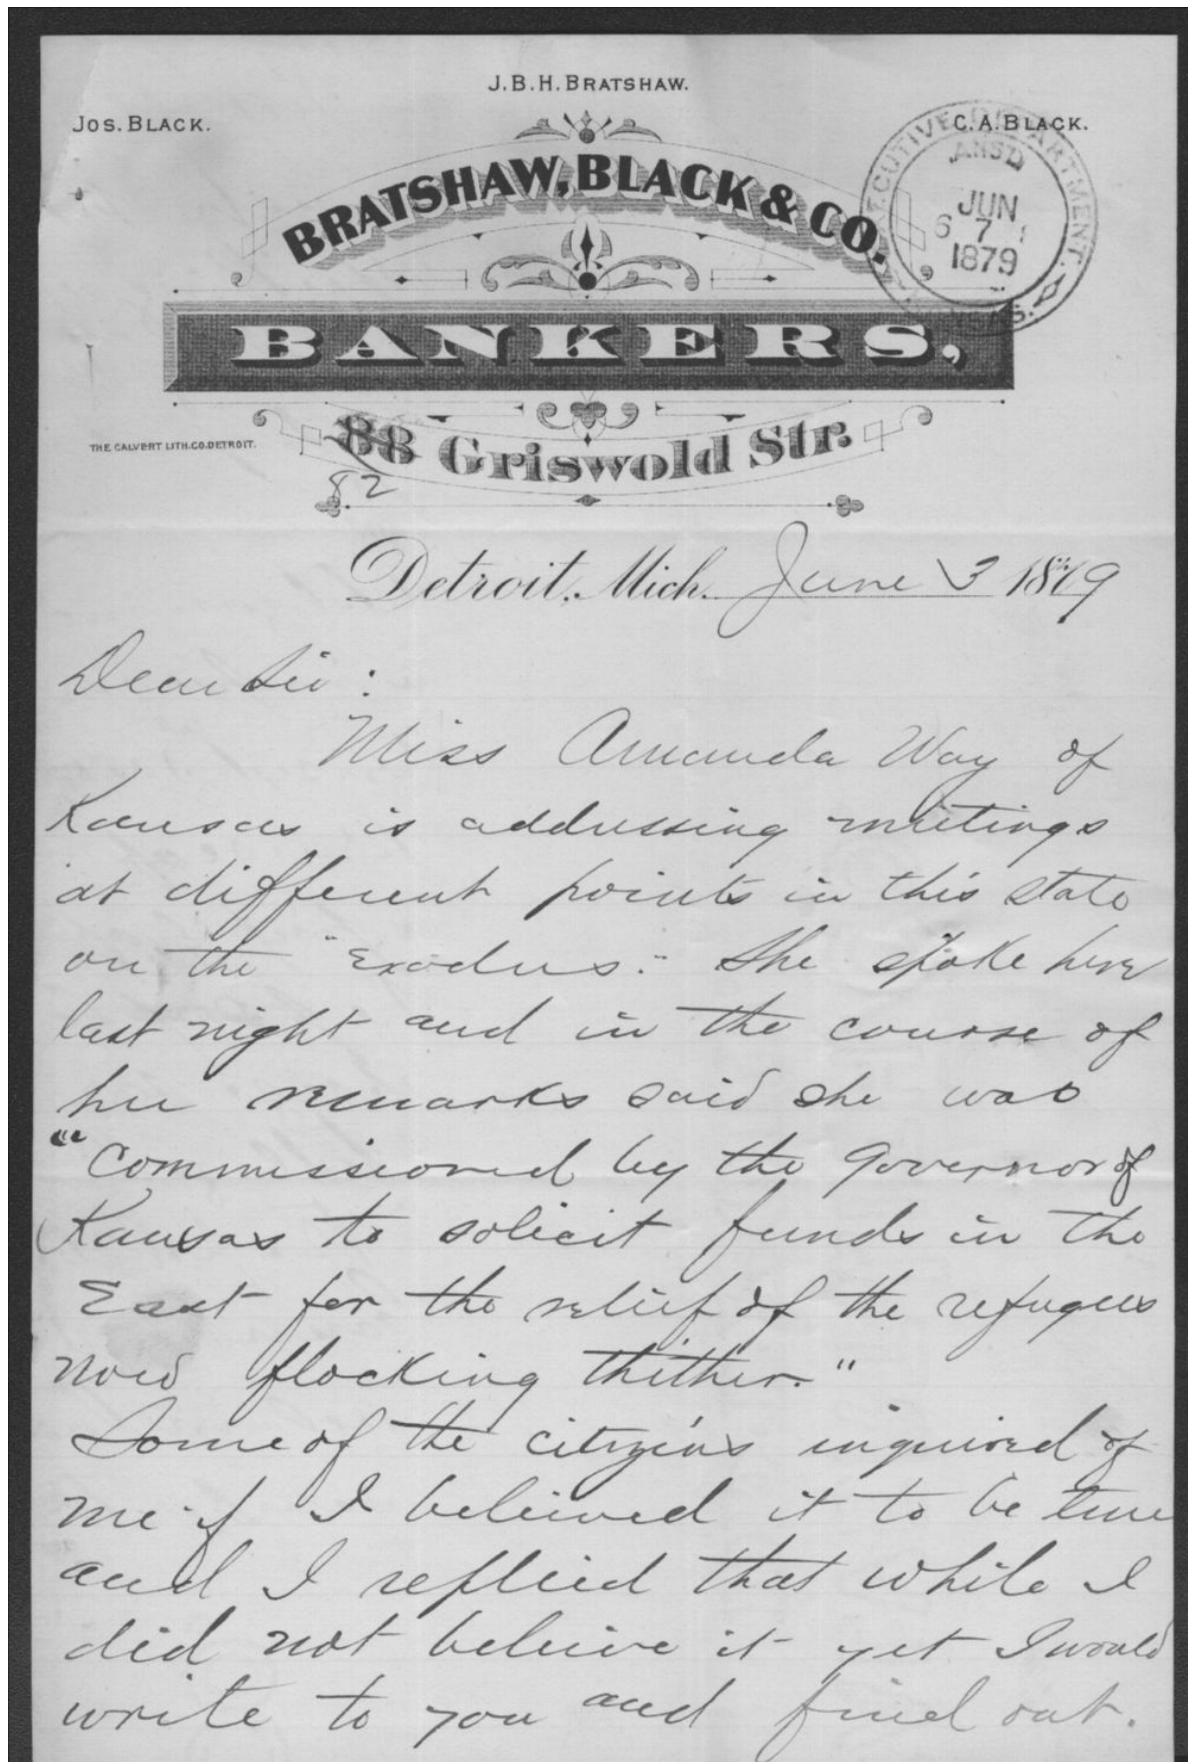 J.B.H. BRATSHAW.
JOS. BLACK.
C.A. BLACK.
BRATSHAW, BLACK & CO.
BANKERS,
EXECUTIVE DEPARTMENT.
ANSD
JUN
6 7
1879
KANSAS.
THE CALVERT LITH.CO.DETROIT.
88 Griswold Str.
82
Detroit, Mich. June 3 1879
Dear Sir:
Miss Amanda Way of
Kansas is addressing meetings
at different points in this state
on the "Exodus." She spoke here
last night and in the course of
her remarks said she was
"Commissioned by the Governor of
Kansas to solicit funds in the
East for the relief of the refugees
now flocking thither."
Some of the citizens inquired of
me if I believed it to be true
and I replied that while I
did not believe it yet I would
write to you and find out.